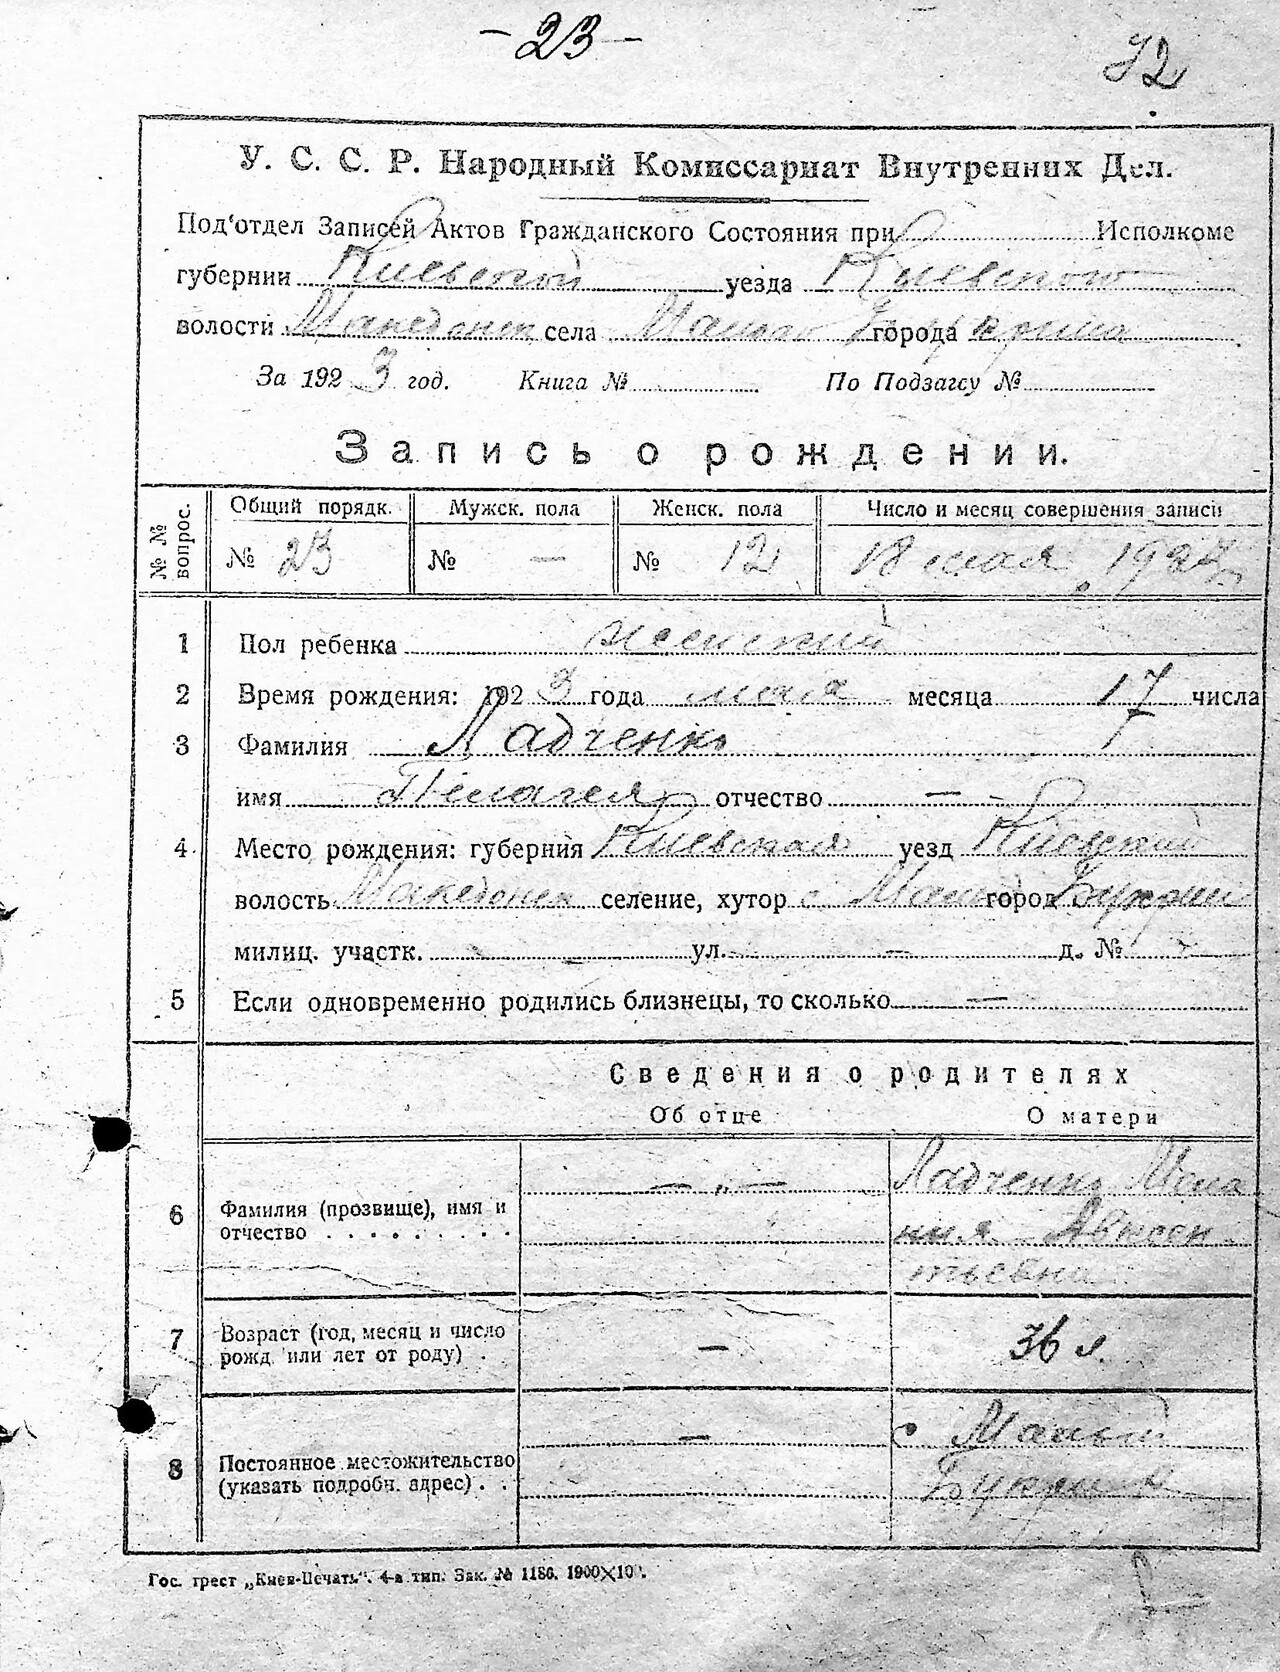 -23-
72
У. С. С. Р. Народный Комиссариат Внутренних Дел.
Под'отдел Записей Актов Гражданского Состояния при Исполкоме
губернии Киевской уезда Киевского
волости Македонск села Малого Букрина города
За 1923 год. Книга № По Подзагсу №
Запись о рождении.
№№ вопрос. Общий порядк. Мужск. пола Женск. пола Число и месяц совершения записи
№ 23 № — № 12 18 мая 192
1 Пол ребенка женский
2 Время рождения: 1923 года мая месяца 17 числа
3 Фамилия Ладченко
имя Пелагея отчество —
4 Место рождения: губерния Киевская уезд Киевский
волость Македонск селение, хутор с. Малы город Букрин
милиц. участк. — ул. — д. № -
5 Если одновременно родились близнецы, то сколько —
Сведения о родителях
Об отце О матери
6 Фамилия (прозвище), имя и отчество — „ — Ладченко Мела
ния Авксен
тьевна
7 Возраст (год, месяц и число рожд. или лет от роду) — 36 л.
8 Постоянное местожительство (указать подробн. адрес) — с Малый
Букрин
Гос. трест „Киев-Печать". 4-а тип. Зак. № 1186. 1900×10